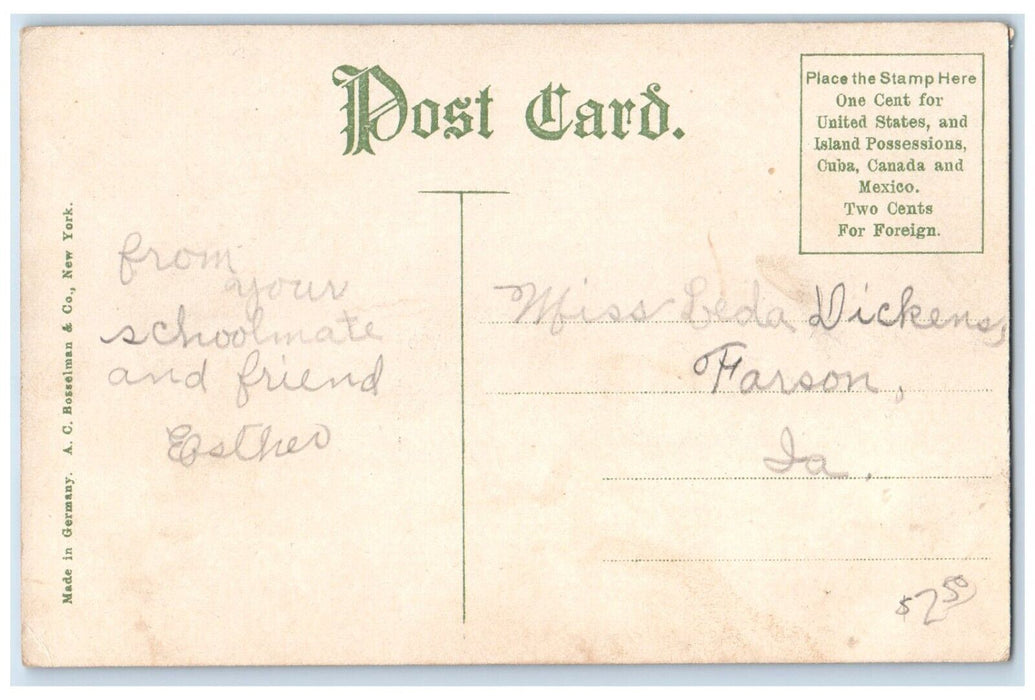 Post Card.
Place the Stamp Here
One Cent for
United States, and
Island Possessions,
Cuba, Canada and
Mexico.
Two Cents
For Foreign.
Made in Germany. A. C. Bosselman & Co., New York.
from
your
schoolmate
and friend
Esther
Miss Leda Dickens,
Farson,
Ia.
$2.50